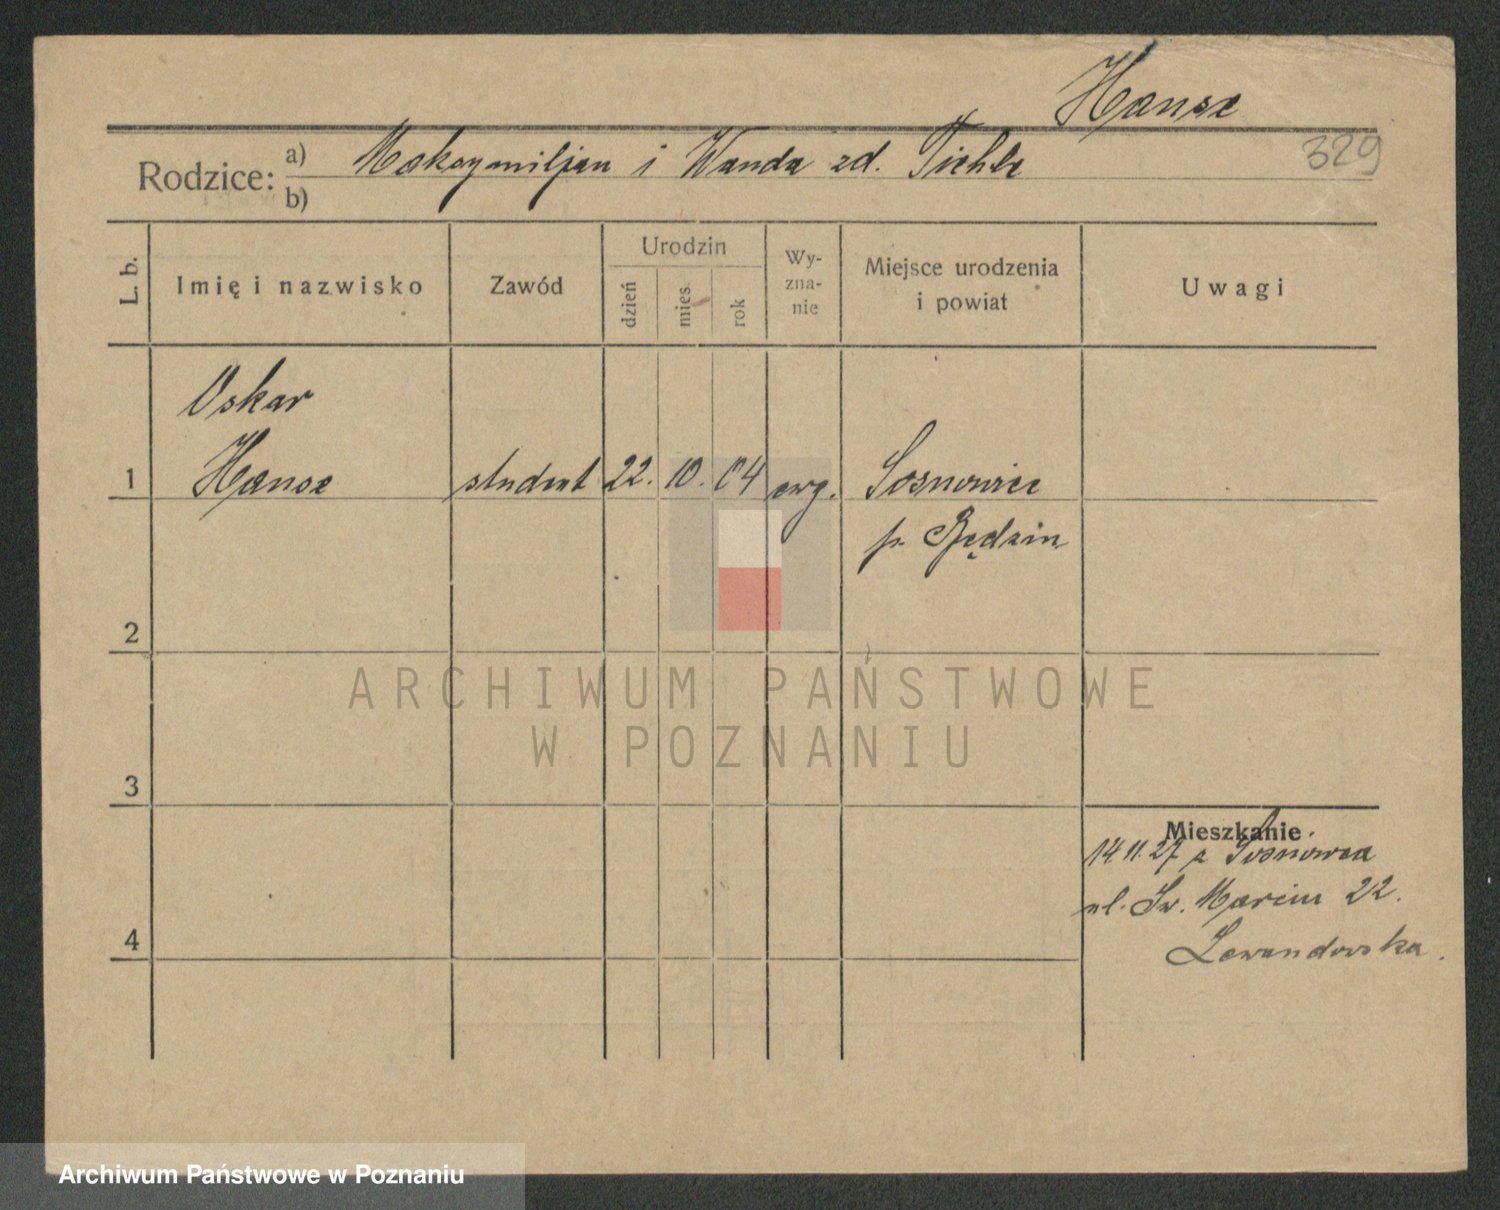 Hansz
Rodzice: a) Maksymiljan i Wanda zd. Tichle
b)
329
L. b.
Imię i nazwisko
Zawód
Urodzin
dzień
mies.
rok
Wy-
zna-
nie
Miejsce urodzenia
i powiat
Uwagi
Oskar
1 Hansz student 22. 10. 04 ewg. Sosnowice
p. Będzin
2
3
4
Mieszkanie
14.11.27 z Sosnowca
ul. Św. Marcin 22.
Lewandowska.
ARCHIWUM PAŃSTWOWE
W POZNANIU
Archiwum Państwowe w Poznaniu